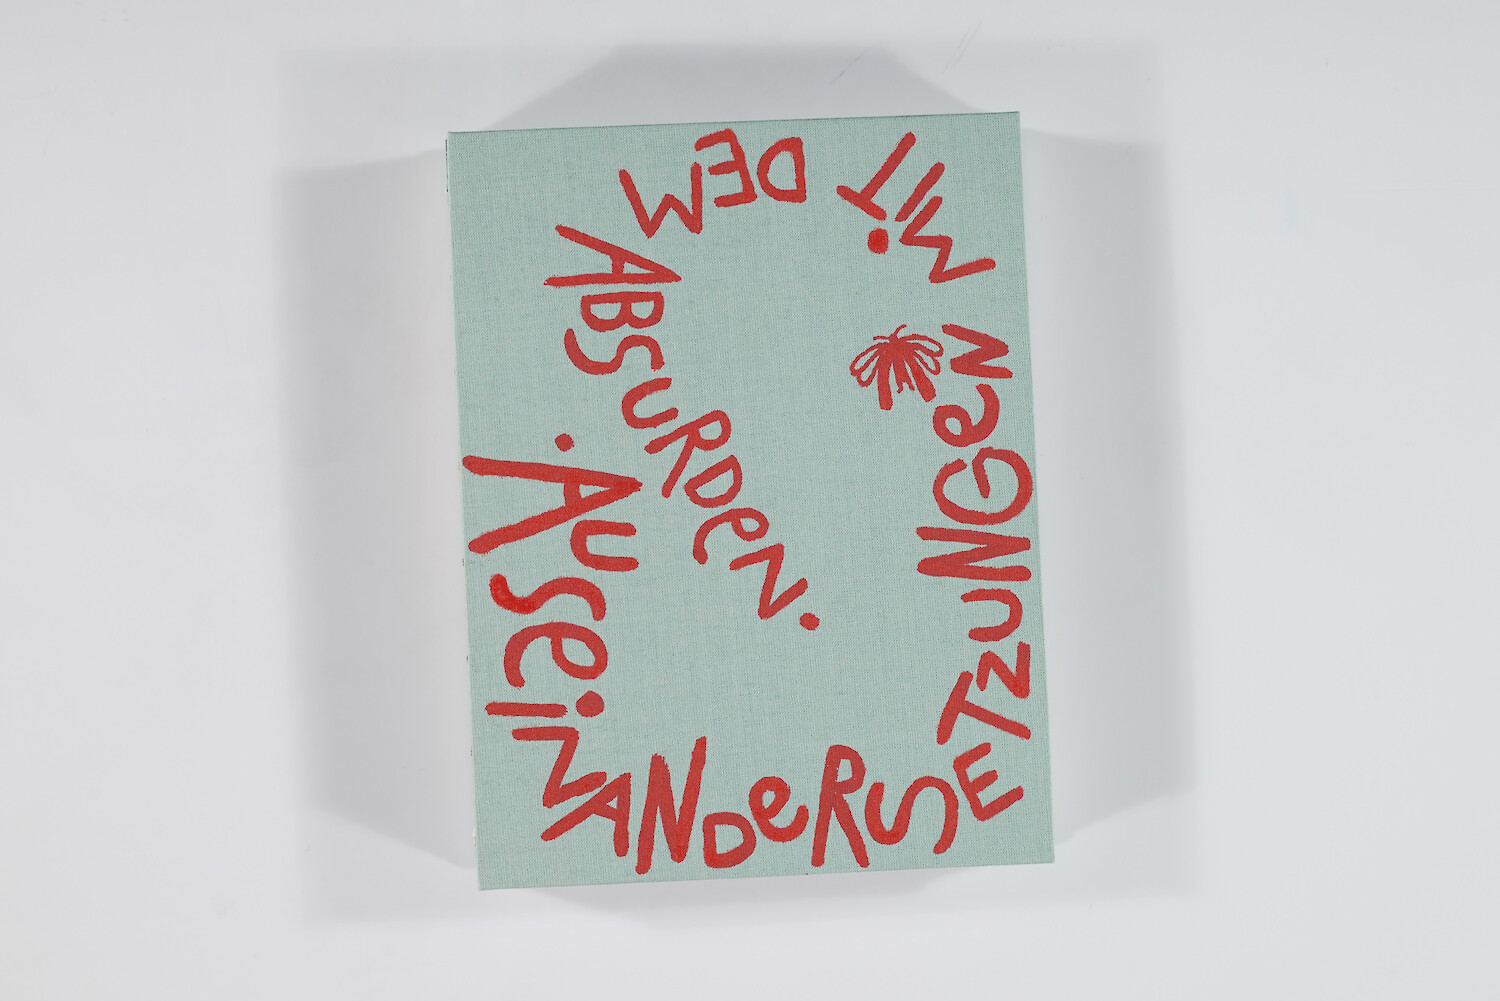 AUSEINANDERSETZUNGEN
MIT
DEM
ABSURDEN.